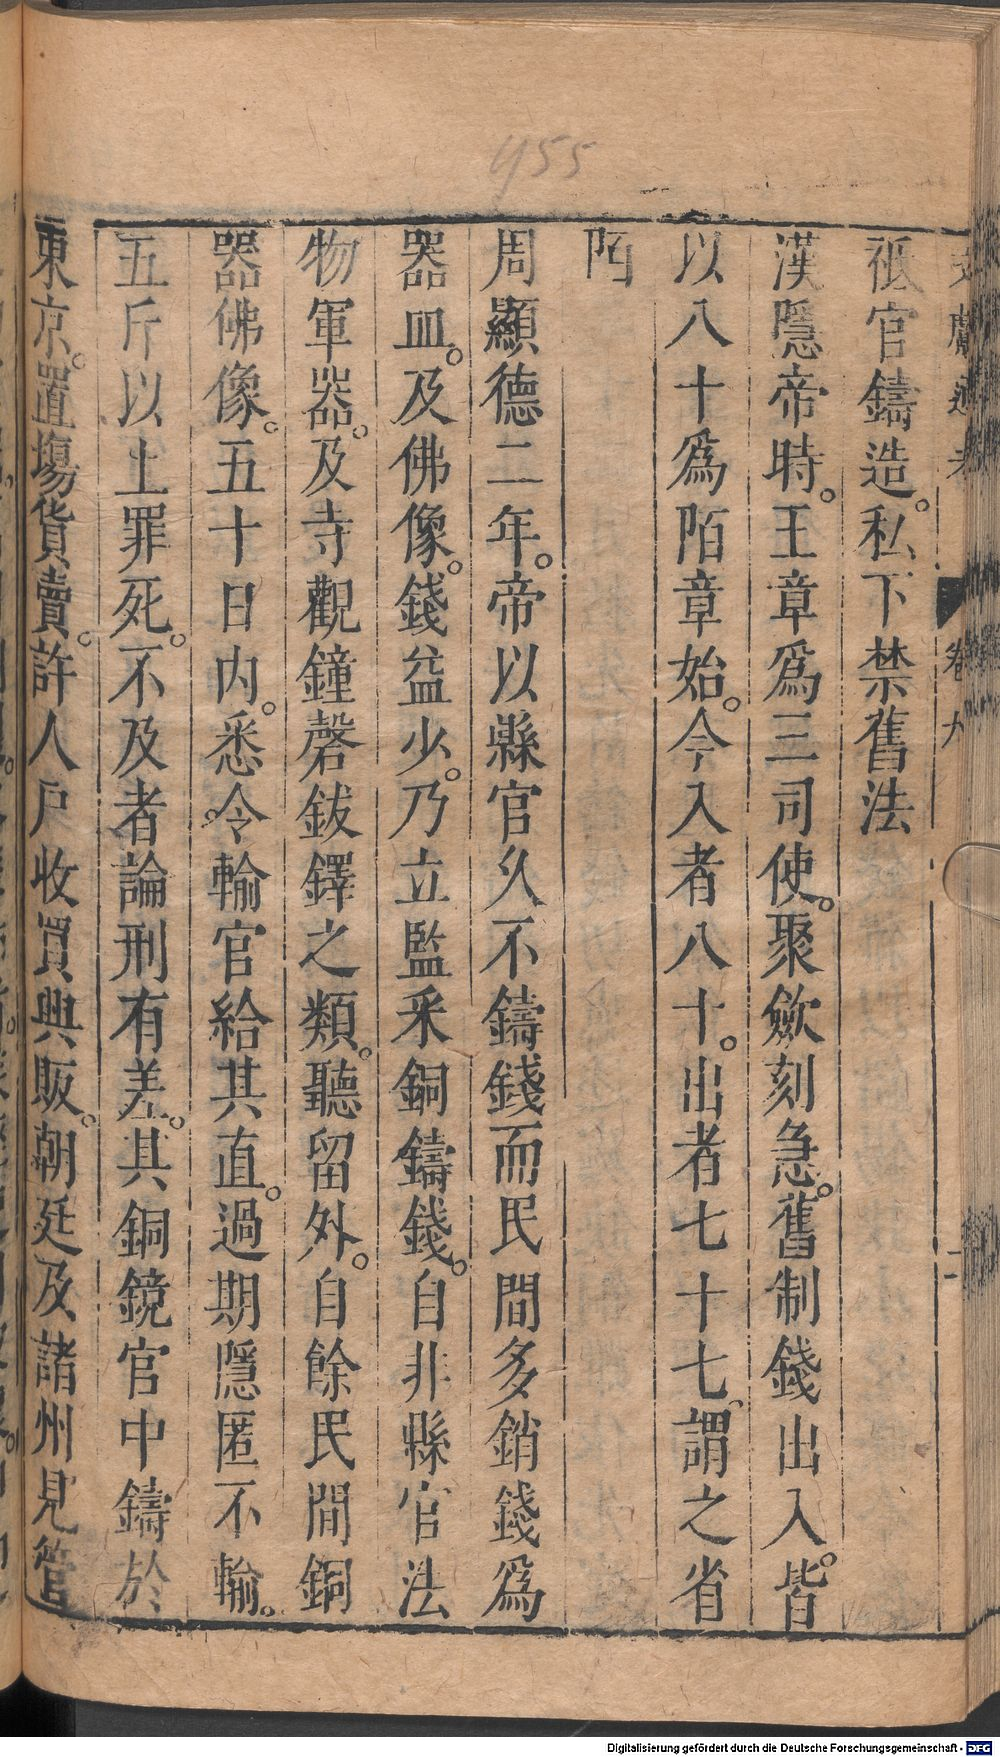 455
文獻通考 卷九 二
祗官鑄造。私下禁舊法
漢隱帝時。王章爲三司使。聚歛刻急。舊制錢出入。皆
以八十爲陌章始。令入者八十。出者七十七、謂之省
陌
周顯德二年。帝以縣官久不鑄錢而民間多銷錢爲
器皿。及佛像。錢益少。乃立監采銅鑄錢。自非縣官法
物軍器。及寺觀鐘磬鈸鐸之類。聽留外。自餘民間銅
器佛像。五十日内。悉令輸官給其直。過期隱匿不輸。
五斤以上罪死。不及者論刑有差。其銅鏡官中鑄於
東京。置塲貨賣。許人戶收買興販。朝廷及諸州見管
Digitalisierung gefördert durch die Deutsche Forschungsgemeinschaft - DFG